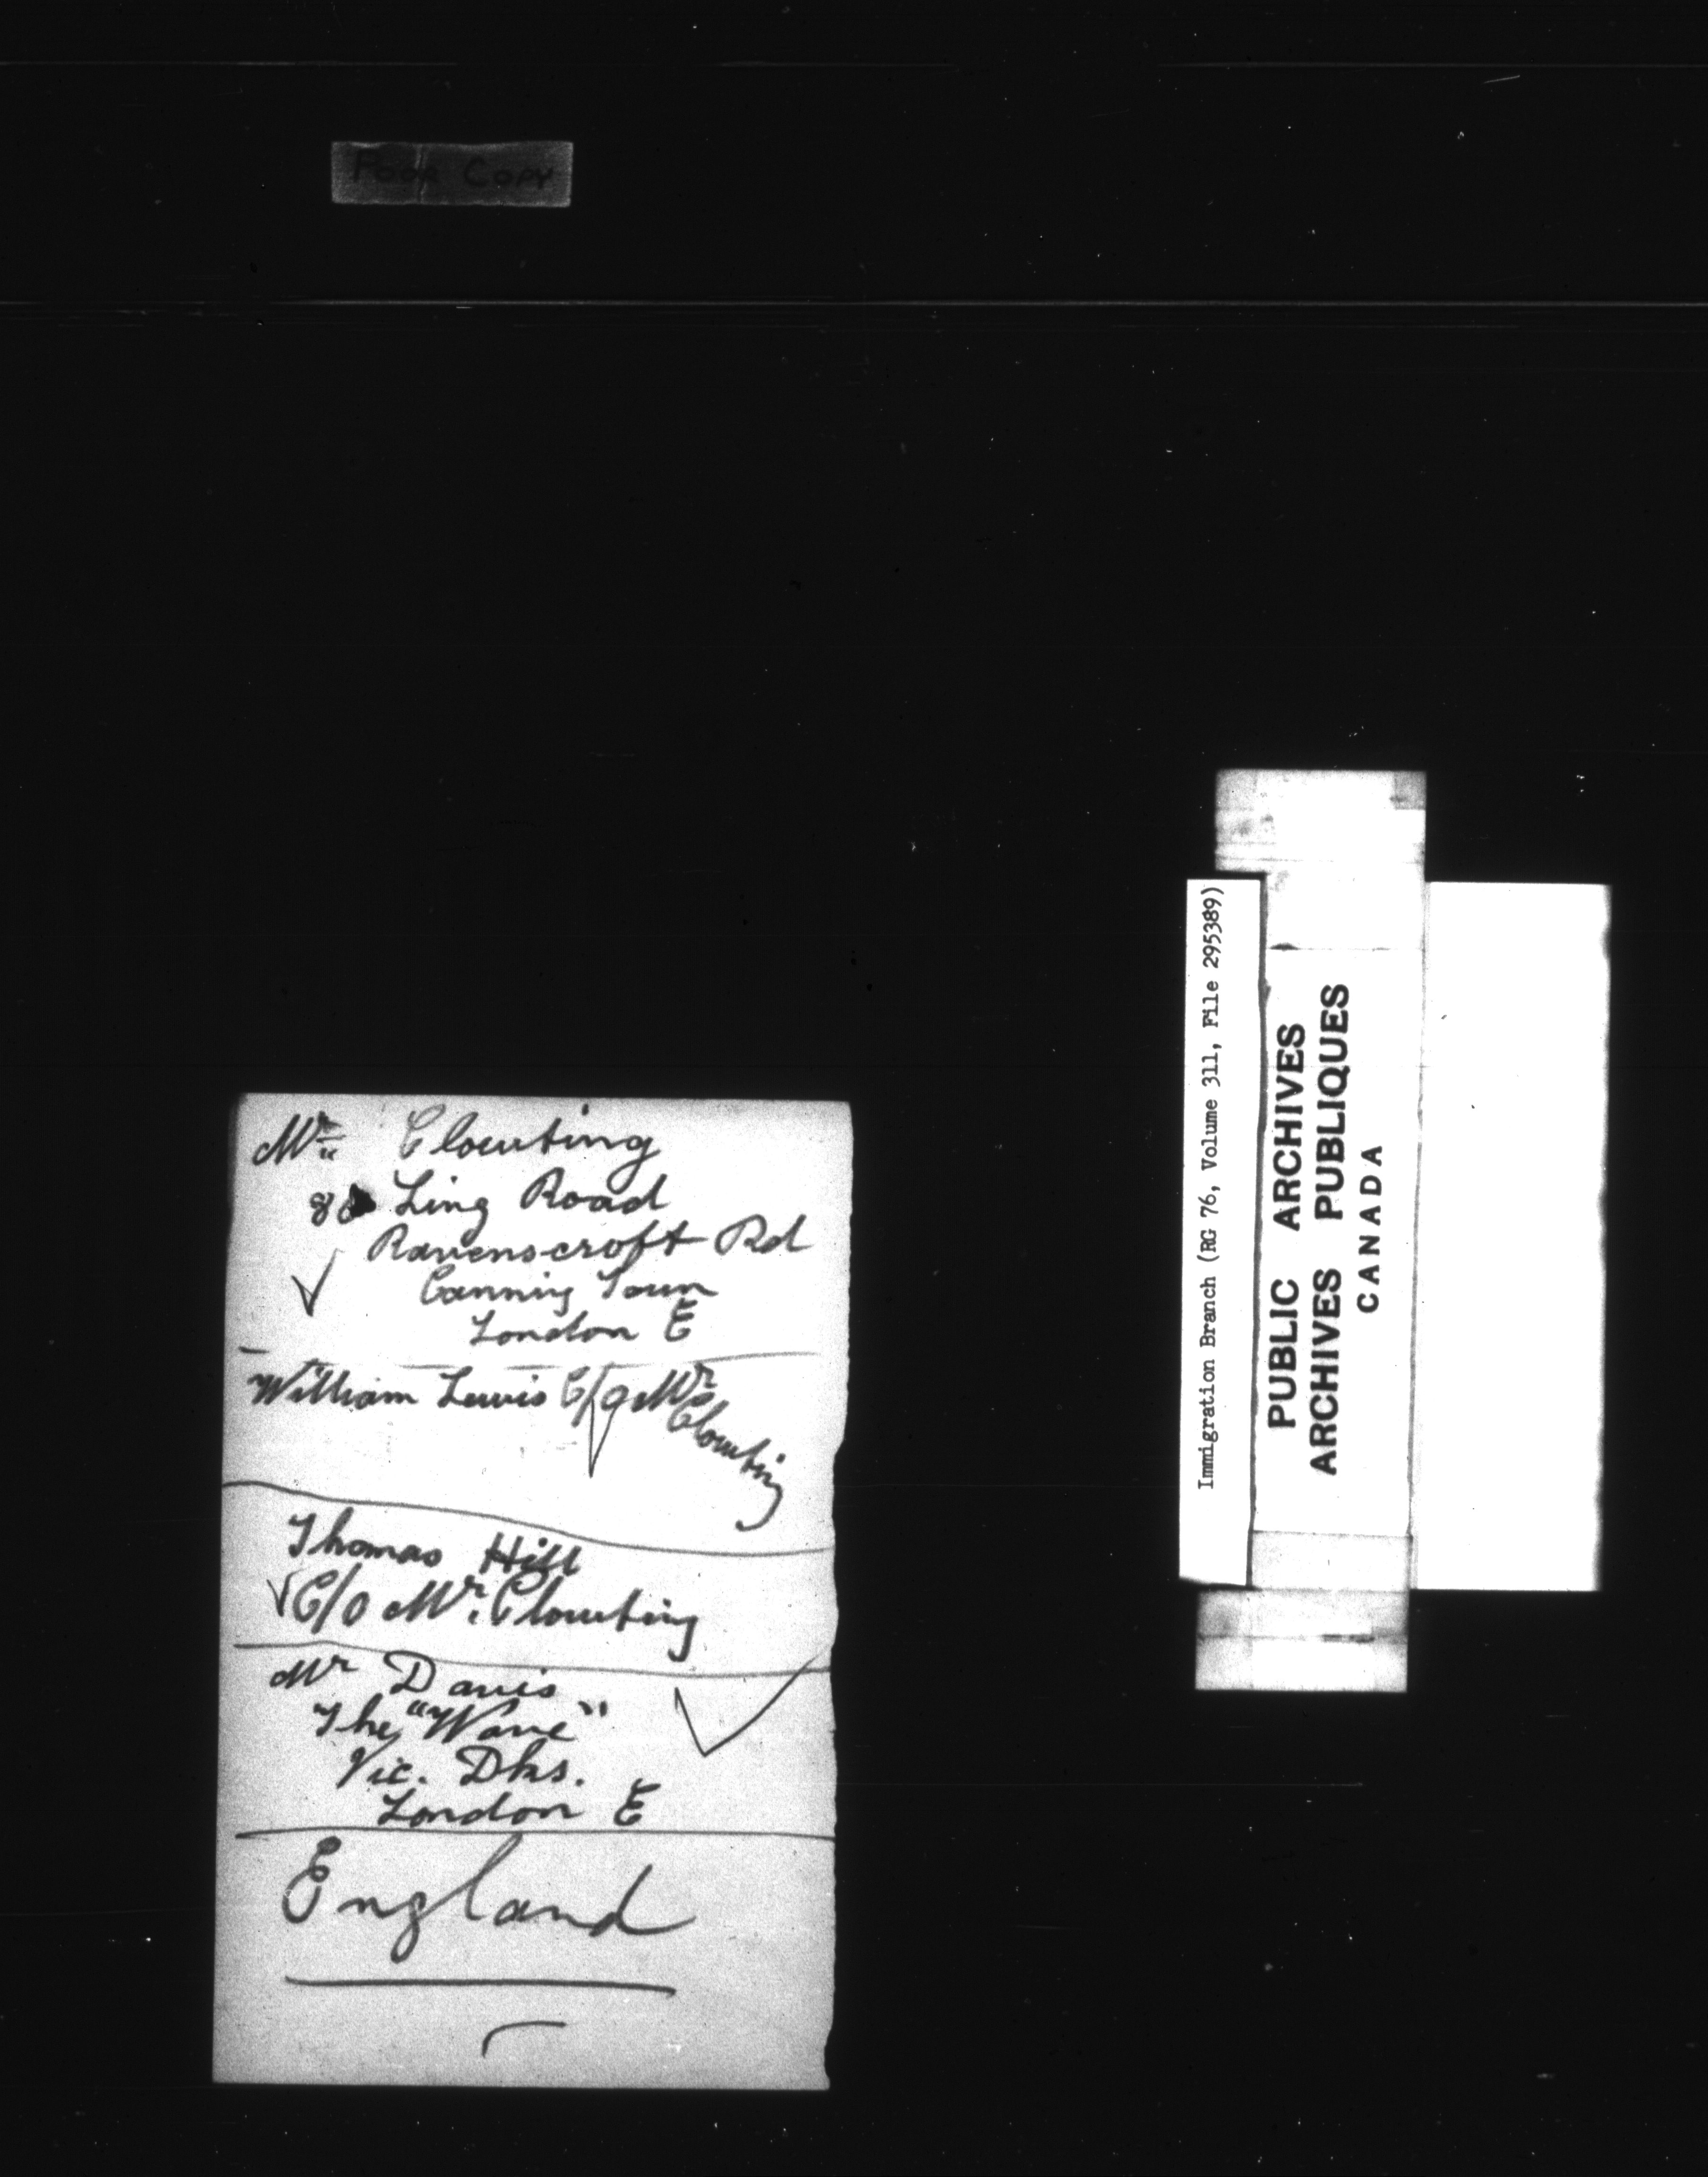 Poor Copy
Mr Clouting
88 Ling Road
Ravenscroft Rd
Canning Town
London E
William Lewis C/o Mr Clouting
Thomas Hill
C/o Mr. Clouting
Mr Davis
The "Wave"
Vic. Dks.
London E
England
Immigration Branch (RG 76, Volume 311, File 295389)
PUBLIC ARCHIVES
ARCHIVES PUBLIQUES
CANADA